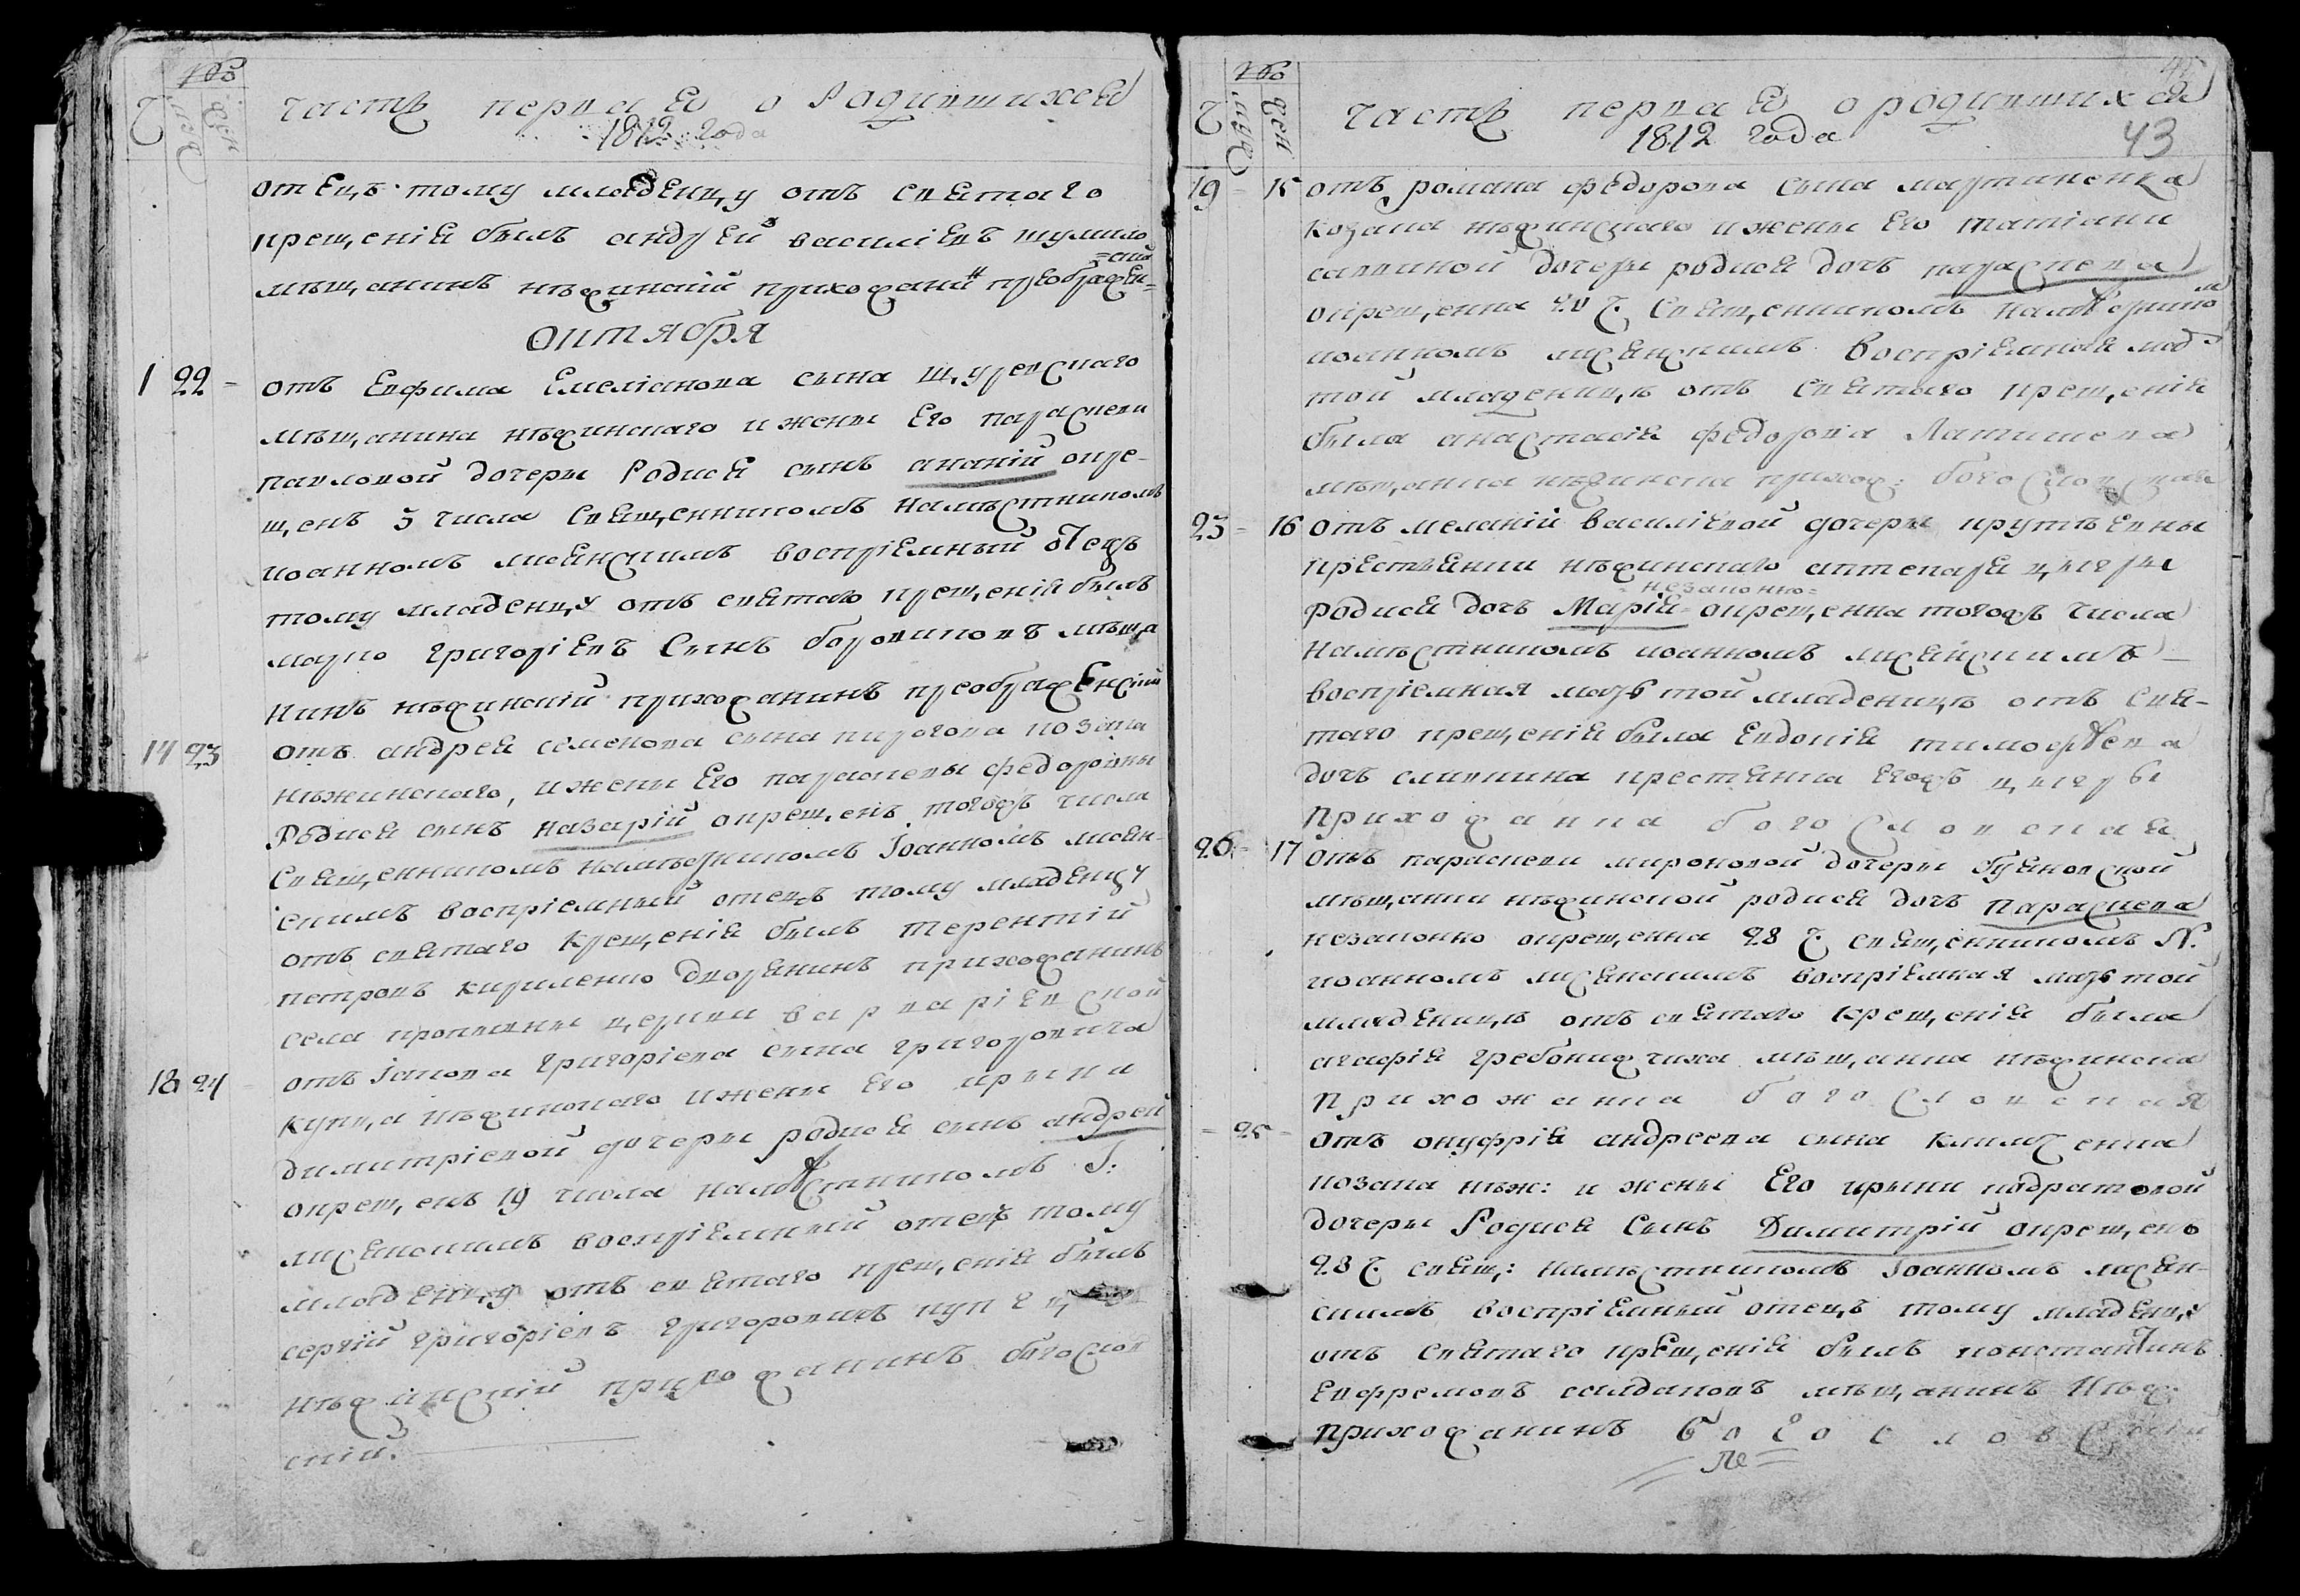 Часть первая о Родившихся
1812 года
отецъ тому младенцу отъ святаго
крещенія былъ андрей василіевъ шумило
мѣщанинъ нѣжинскій прихожанин преображен=
=скій
октября
1 22 отъ Евфима Емеліанова сына Щуревскаго
мѣщанина нѣжинскаго и жены Его параскеви
павловой дочеры Родися сынъ ананій окре-
щенъ 3 числа Священникомъ намѣстникомъ
иоанномъ воспріемный отецъ
тому младенцу отъ святаго крещенія былъ
марко григоріевъ Сынъ боровиковъ мѣща
нинъ нѣжинскій прихожанинъ преображенскій
14 23 отъ андрея семенова сына пирогова козака
нѣжинскаго, и жены Его параскевы федоровны
Родися сынъ назарій окрещенъ тогожъ числа
Священникомъ намѣстникомъ Іоанномъ
воспріемный отецъ тому младенцу
отъ святаго крещенія былъ терентій
петровъ кириленко дворянинъ прихожанинъ
села кропивны церкви варваріевской
18 24 отъ Іакова григоріева сына григоровича
купца нѣжинскаго и жены Его ирини
димитріевой дочеры родися сынъ андрей
окрещенъ 19 числа намѣстникомъ І:
воспріемный отецъ тому
младенцу отъ святаго крещенія былъ
сергій григоріевъ григоровичъ купец
нѣжинскій прихожанинъ богослов
скій.
Часть первая о родившихся
1812 года
43
19 15 отъ романа федорова сына мартиненка
козака нѣжинскаго и жены Его татіани
саввиной дочеры родися дочь параскева
окрещенна 20 ч. Священникомъ намѣстником
иоанномъ воспріемная мать
той младеницѣ отъ святаго крещенія
была анастасія федорова Латишева
мѣщанка нѣжинска прихож: богословская
23 16 отъ меланій василіевой дочеры крутѣевны
крестянки нѣжинскаго аптекаря
=незаконно=
родися дочь Марія окрещенна тогожъ числа
Намѣстникомъ иоанномъ
воспріемная мать той младеницѣ отъ Свя-
таго крещенія была Евдокія тимофѣева
дочь сливкина крестянка Егожъ
прихожанка богословская
26 17 отъ параскеви мироновой дочеры буяновской
мѣщанки нѣжинской родися дочь параскева
незаконно окрещенна 28 ч. священникомъ N.
иоанномъ воспріемная мать той
младеницѣ отъ святаго крещенія была
агафія гребонижчиха мѣщанка нѣжинска
прихожанка богословская
25 отъ онуфрія андреева сына климченка
козака нѣж: и жены Его ирыни кодратовой
дочеры Родися Сынъ Димитрій окрещенъ
28 ч. свящ: намѣстникомъ Іоанномъ
воспріемный отецъ тому младенцу
отъ Святаго крещенія былъ константинъ
Евфремовъ салдаковъ мѣщанинъ Нѣж.
прихожанинъ богословскій